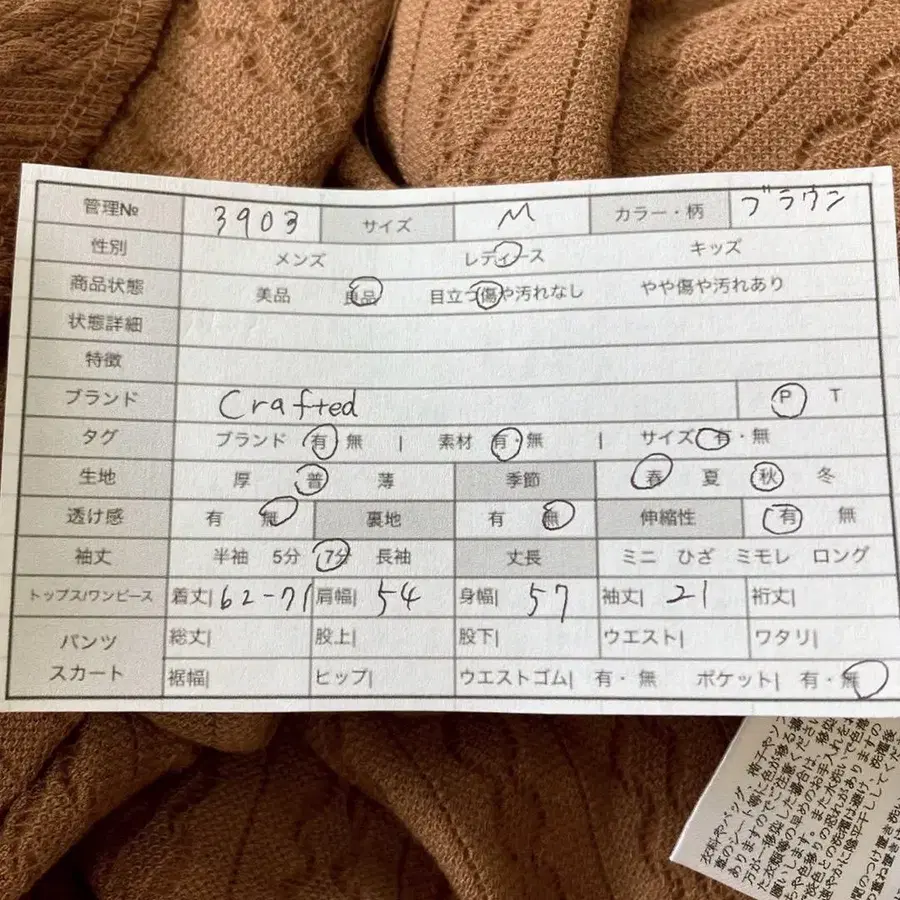 管理№ 3903 サイズ M カラー・柄 ブラウン
性別 メンズ レディース キッズ
商品状態 美品 良品 目立つ傷や汚れなし やや傷や汚れあり
状態詳細
特徴
ブランド Crafted P T
タグ ブランド 有・無 | 素材 有・無 | サイズ 有・無
生地 厚 普 薄 季節 春 夏 秋 冬
透け感 有 無 裏地 有 無 伸縮性 有 無
袖丈 半袖 5分 7分 長袖 丈長 ミニ ひざ ミモレ ロング
トップス/ワンピース 着丈| 62-71 肩幅| 54 身幅| 57 袖丈| 21 裄丈|
パンツ スカート 総丈| 股上| 股下| ウエスト| ワタリ|
裾幅| ヒップ| ウエストゴム| 有・無 ポケット| 有・無